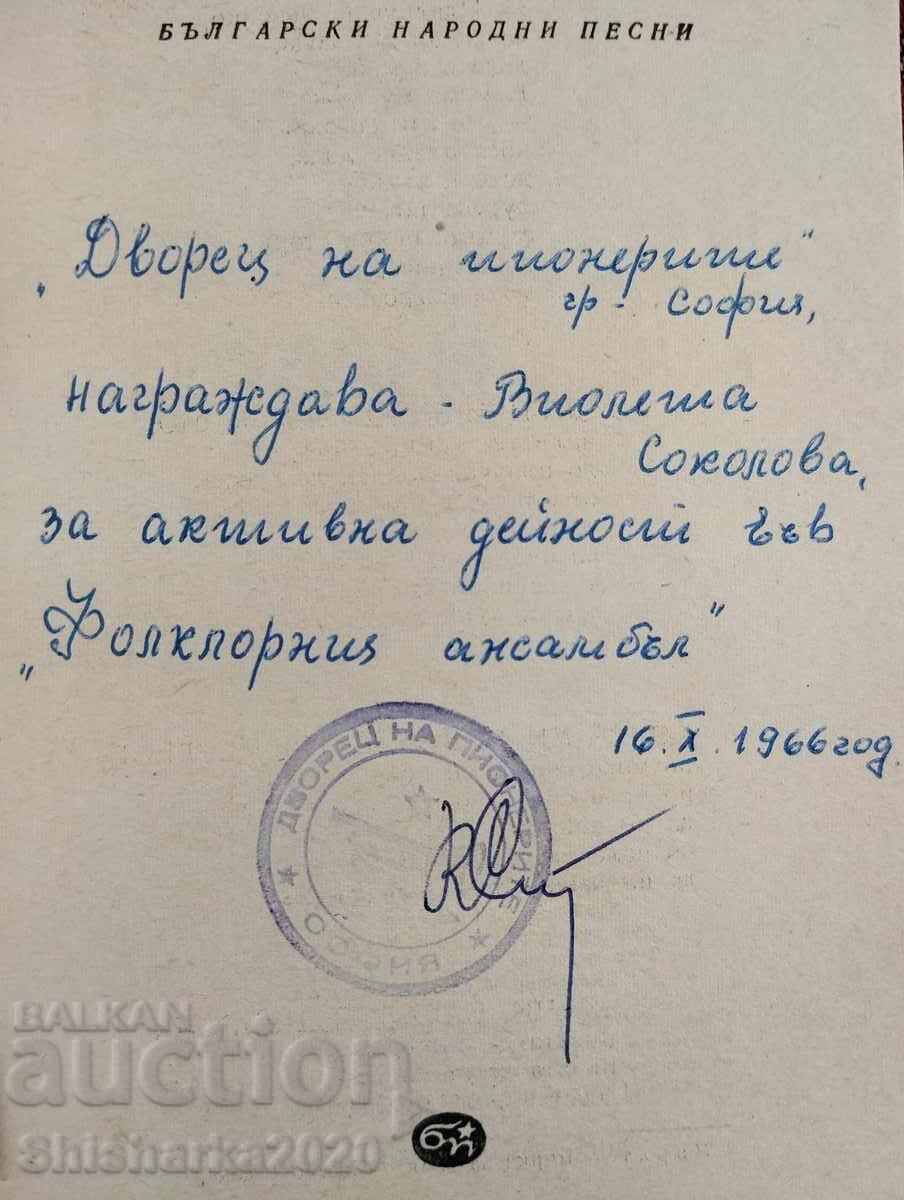 БЪЛГАРСКИ НАРОДНИ ПЕСНИ
„Дворец на пионерите"
гр. София,
награждава - Виолета
Соколова,
за активна дейност във
„Фолклорния ансамбъл"
16.X.1966 год.
ДВОРЕЦ НА ПИОНЕРИТЕ
СОФИЯ
BALKAN
auction
Shisharka2020
бп